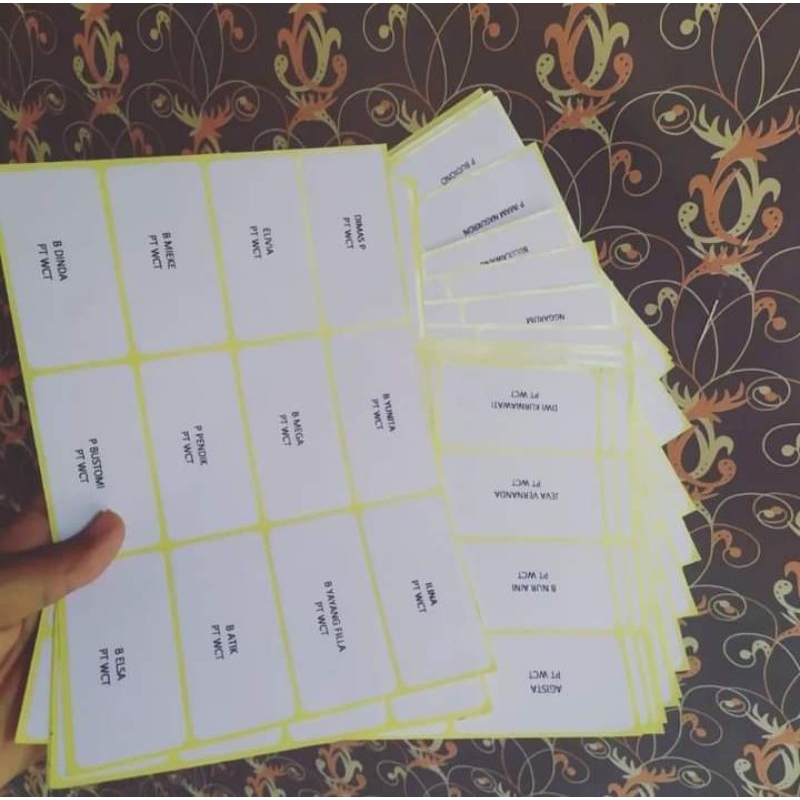 DIMAS P
PT WCT
B YUNITA
PT WCT
ILINA
PT WCT
ELIVIA
PT WCT
B MEGA
PT WCT
B YAYANG FILLA
PT WCT
B MIEKE
PT WCT
P PENDIK
PT WCT
B ATIK
PT WCT
B DINDA
PT WCT
P BUSTOMI
PT WCT
B ELSA
PT WCT
P BUDIONO
P IMAM MASUKRON
NGGARUM
DWI KURNIAWATI
PT WCT
JEVA VERNANDA
PT WCT
B NUR AINI
PT WCT
AGISTA
PT WCT